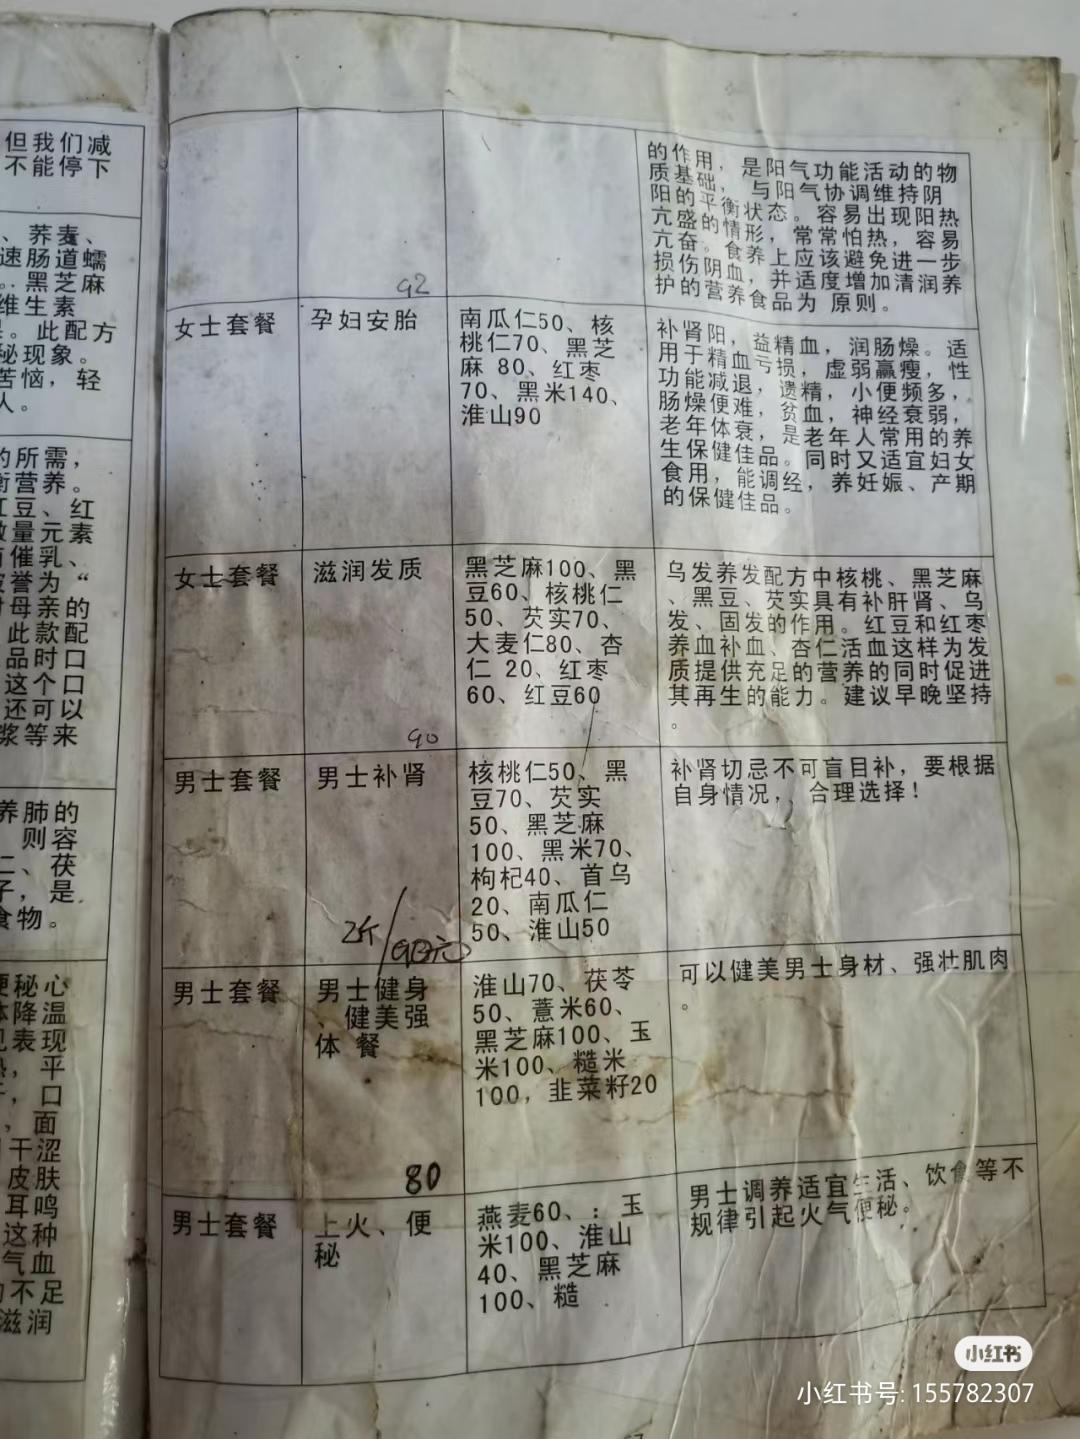 但我们减
不能停下
、荞麦、
速肠道蠕
。黑芝麻
维生素
。此配方
秘现象。
苦恼，轻
人。
的所需，
衡营养。
红豆、红
微量元素
有催乳、
被誉为“
对母亲的
此款配
品时口
这个口
还可以
浆等来
养肺的
则容
仁、茯
子，是
食物。
便秘心
体降温
见表现
热，平
，口
，面
干涩
皮肤
耳鸣
这种
气血
不足
滋润
的作用，是阳气功能活动的物
质基础，与阳气协调维持阴
阳的平衡状态。容易出现阳热
亢盛的情形，常常怕热，容易
亢奋。食养上应该避免进一步
损伤阴血，并适度增加清润养
护的营养食品为 原则。
92
女士套餐
孕妇安胎
南瓜仁50、核
桃仁70、黑芝
麻 80、红枣
70、黑米140、
淮山90
补肾阳，益精血，润肠燥。适
用于精血亏损，虚弱羸瘦，性
功能减退，遗精，小便频多，
肠燥便难，贫血，神经衰弱，
老年体衰，是老年人常用的养
生保健佳品。同时又适宜妇女
食用，能调经，养妊娠、产期
的保健佳品。
女士套餐
滋润发质
90
黑芝麻100、黑
豆60、核桃仁
50、芡实70、
大麦仁80、杏
仁 20、红枣
60、红豆60
乌发养发配方中核桃、黑芝麻
、黑豆、芡实具有补肝肾、乌
发、固发的作用。红豆和红枣
养血补血、杏仁活血这样为发
质提供充足的营养的同时促进
其再生的能力。建议早晚坚持
。
男士套餐
男士补肾
2斤/90元
核桃仁50、黑
豆70、芡实
50、黑芝麻
100、黑米70、
枸杞40、首乌
20、南瓜仁
50、淮山50
补肾切忌不可盲目补，要根据
自身情况，，合理选择！
男士套餐
男士健身
、健美强
体 餐
80
淮山70、茯苓
50、薏米60、
黑芝麻100、玉
米100、糙米
100，韭菜籽20
可以健美男士身材、强壮肌肉
。
男士套餐
上火、便
秘
燕麦60、：玉
米100、淮山
40、黑芝麻
100、糙
男士调养适宜生活、饮食等不
规律引起火气便秘。
小红书
小红书号: 155782307